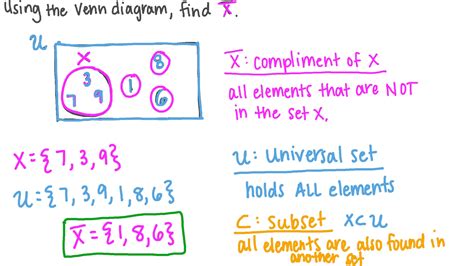 Using the Venn diagram, find X̅.
U
X
3
7 9
1
8
6
X = {7, 3, 9}
U = {7, 3, 9, 1, 8, 6}
X̅ = {1, 8, 6}
X̅: compliment of X
all elements that are NOT
in the set X.
U: Universal set
holds ALL elements
C: subset X⊂U
all elements are also found in
another set